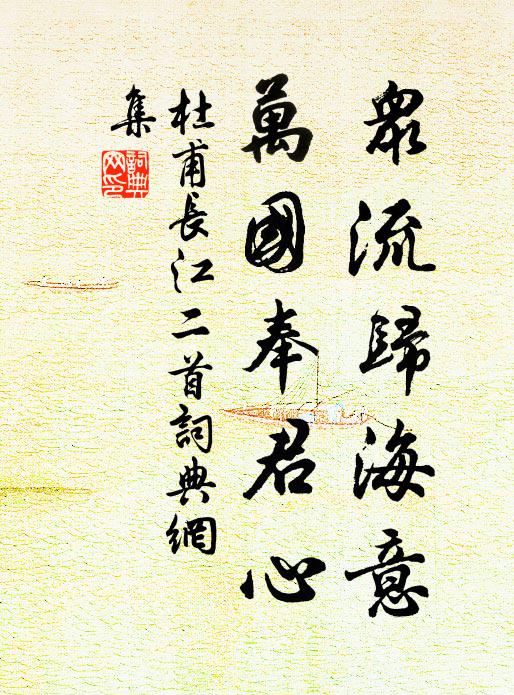 眾流歸海意
萬國奉君心
杜甫長江二首詞典網
集
詞典
网印